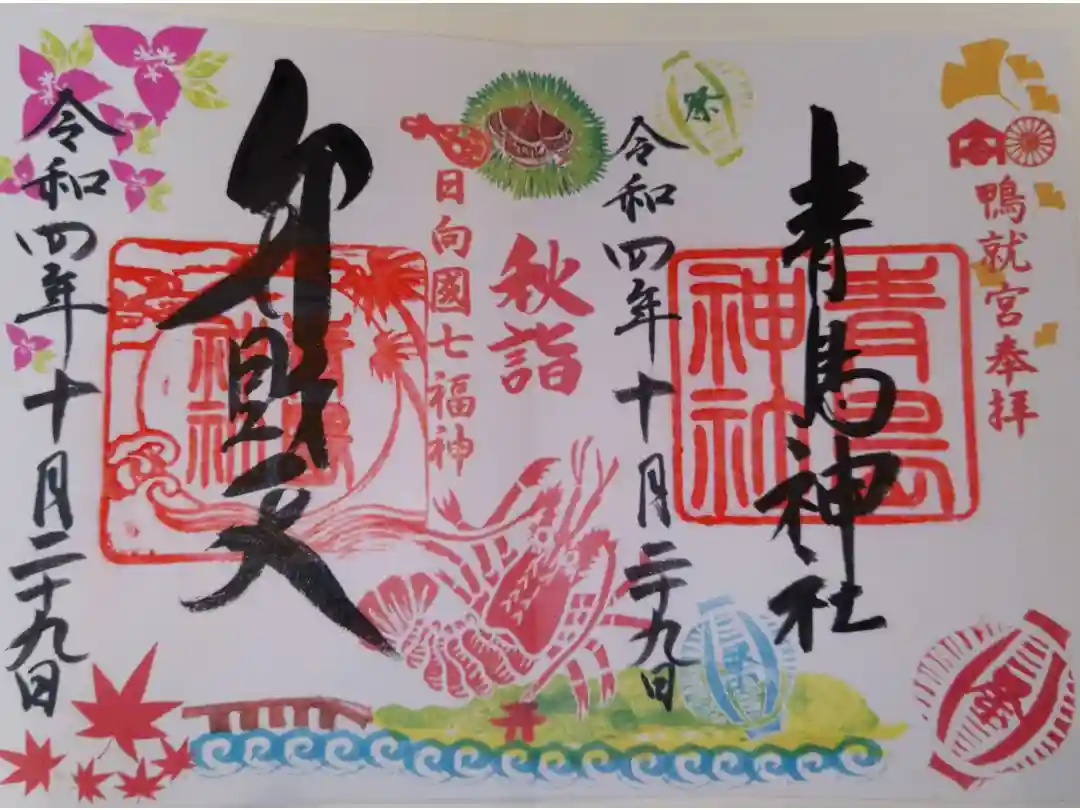 鴨就宮奉拝
青島神社
青島神社
令和四年十月二十九日
祭
祭
祭
秋詣
日向國七福神
弁財天
青島神社
令和四年十月二十九日